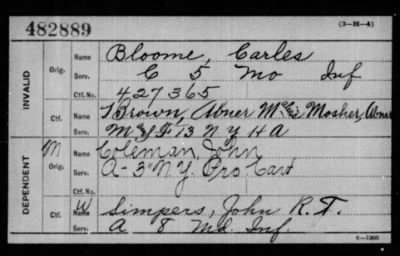 482889
(3-H-4)
INVALID
Orig.
Name Bloome, Carles
Serv. C 5 Mo Inf
Ctf. No. 427365
Ctf. Name Brown, Abner M Mosher, Abner
Serv. 13 N Y H A
DEPENDENT
M
Orig. Coleman, John
A-3" N.Y. Pro. Cav
W
Ctf. Name Simpers, John R. T.
Serv. A 8 Md. Inf.